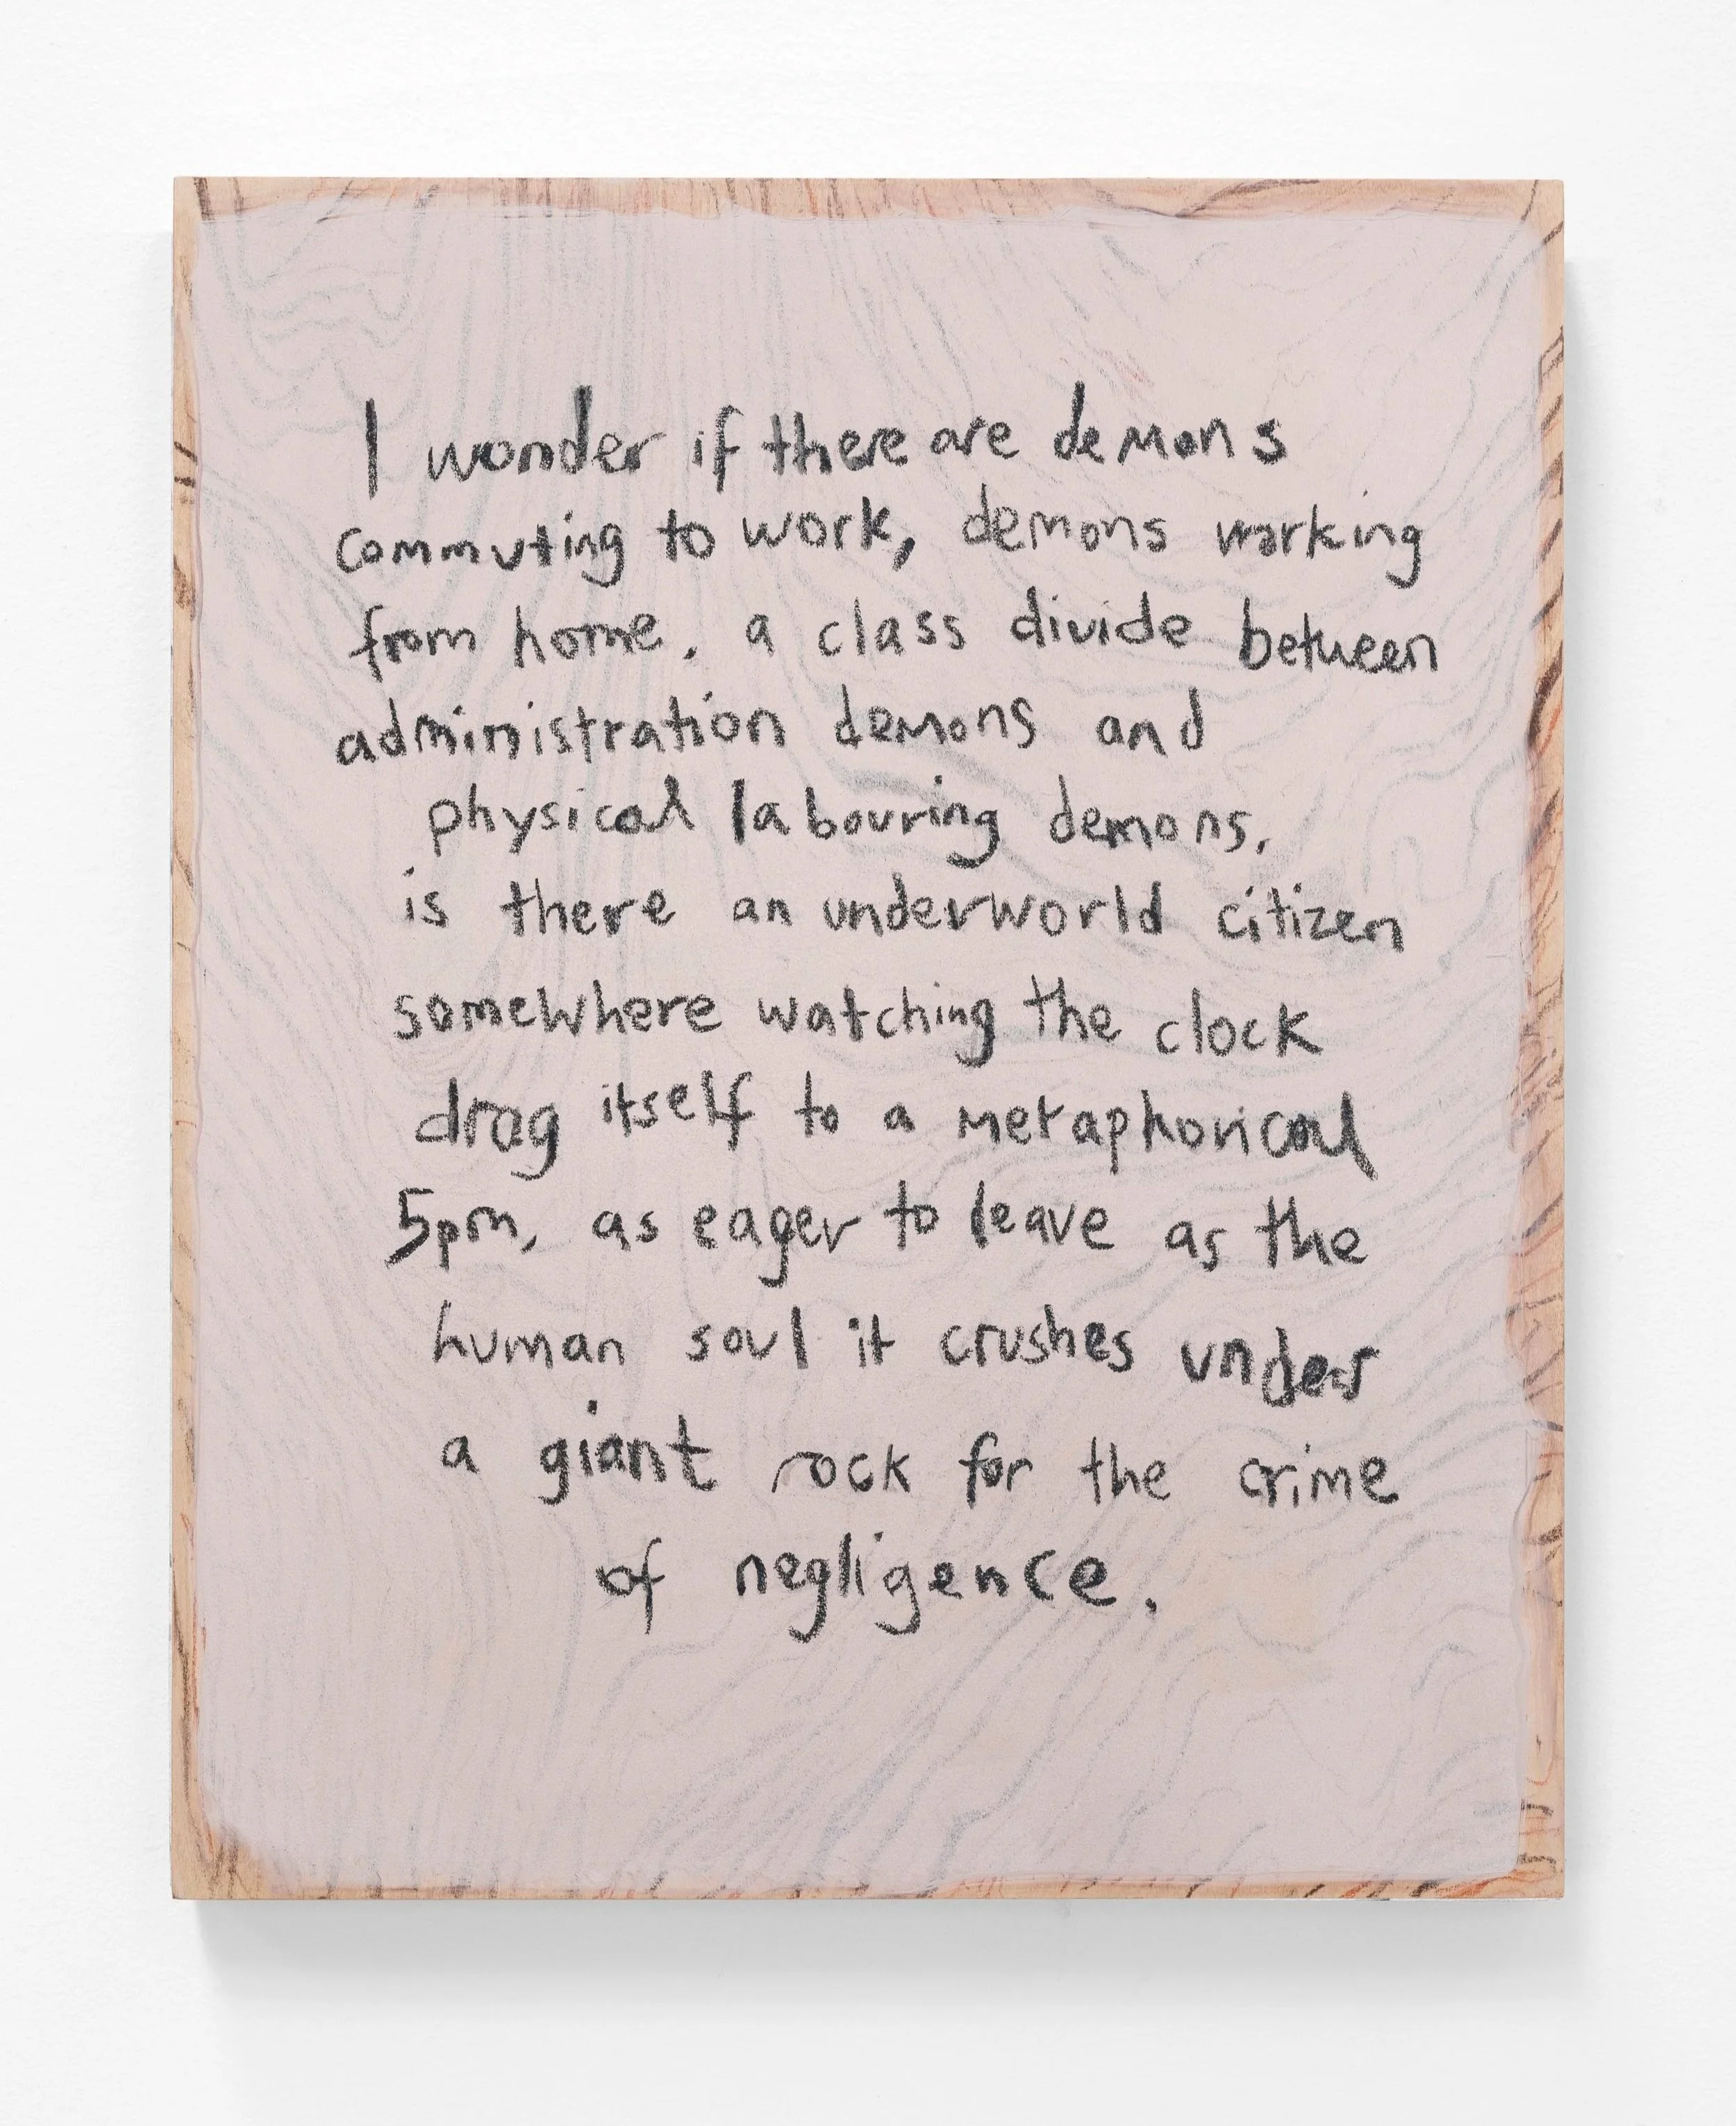 I wonder if there are demons
commuting to work, demons working
from home. a class divide between
administration demons and
physical labouring demons.
is there an underworld citizen
somewhere watching the clock
drag itself to a metaphorical
5pm, as eager to leave as the
human soul it crushes under
a giant rock for the crime
of negligence.